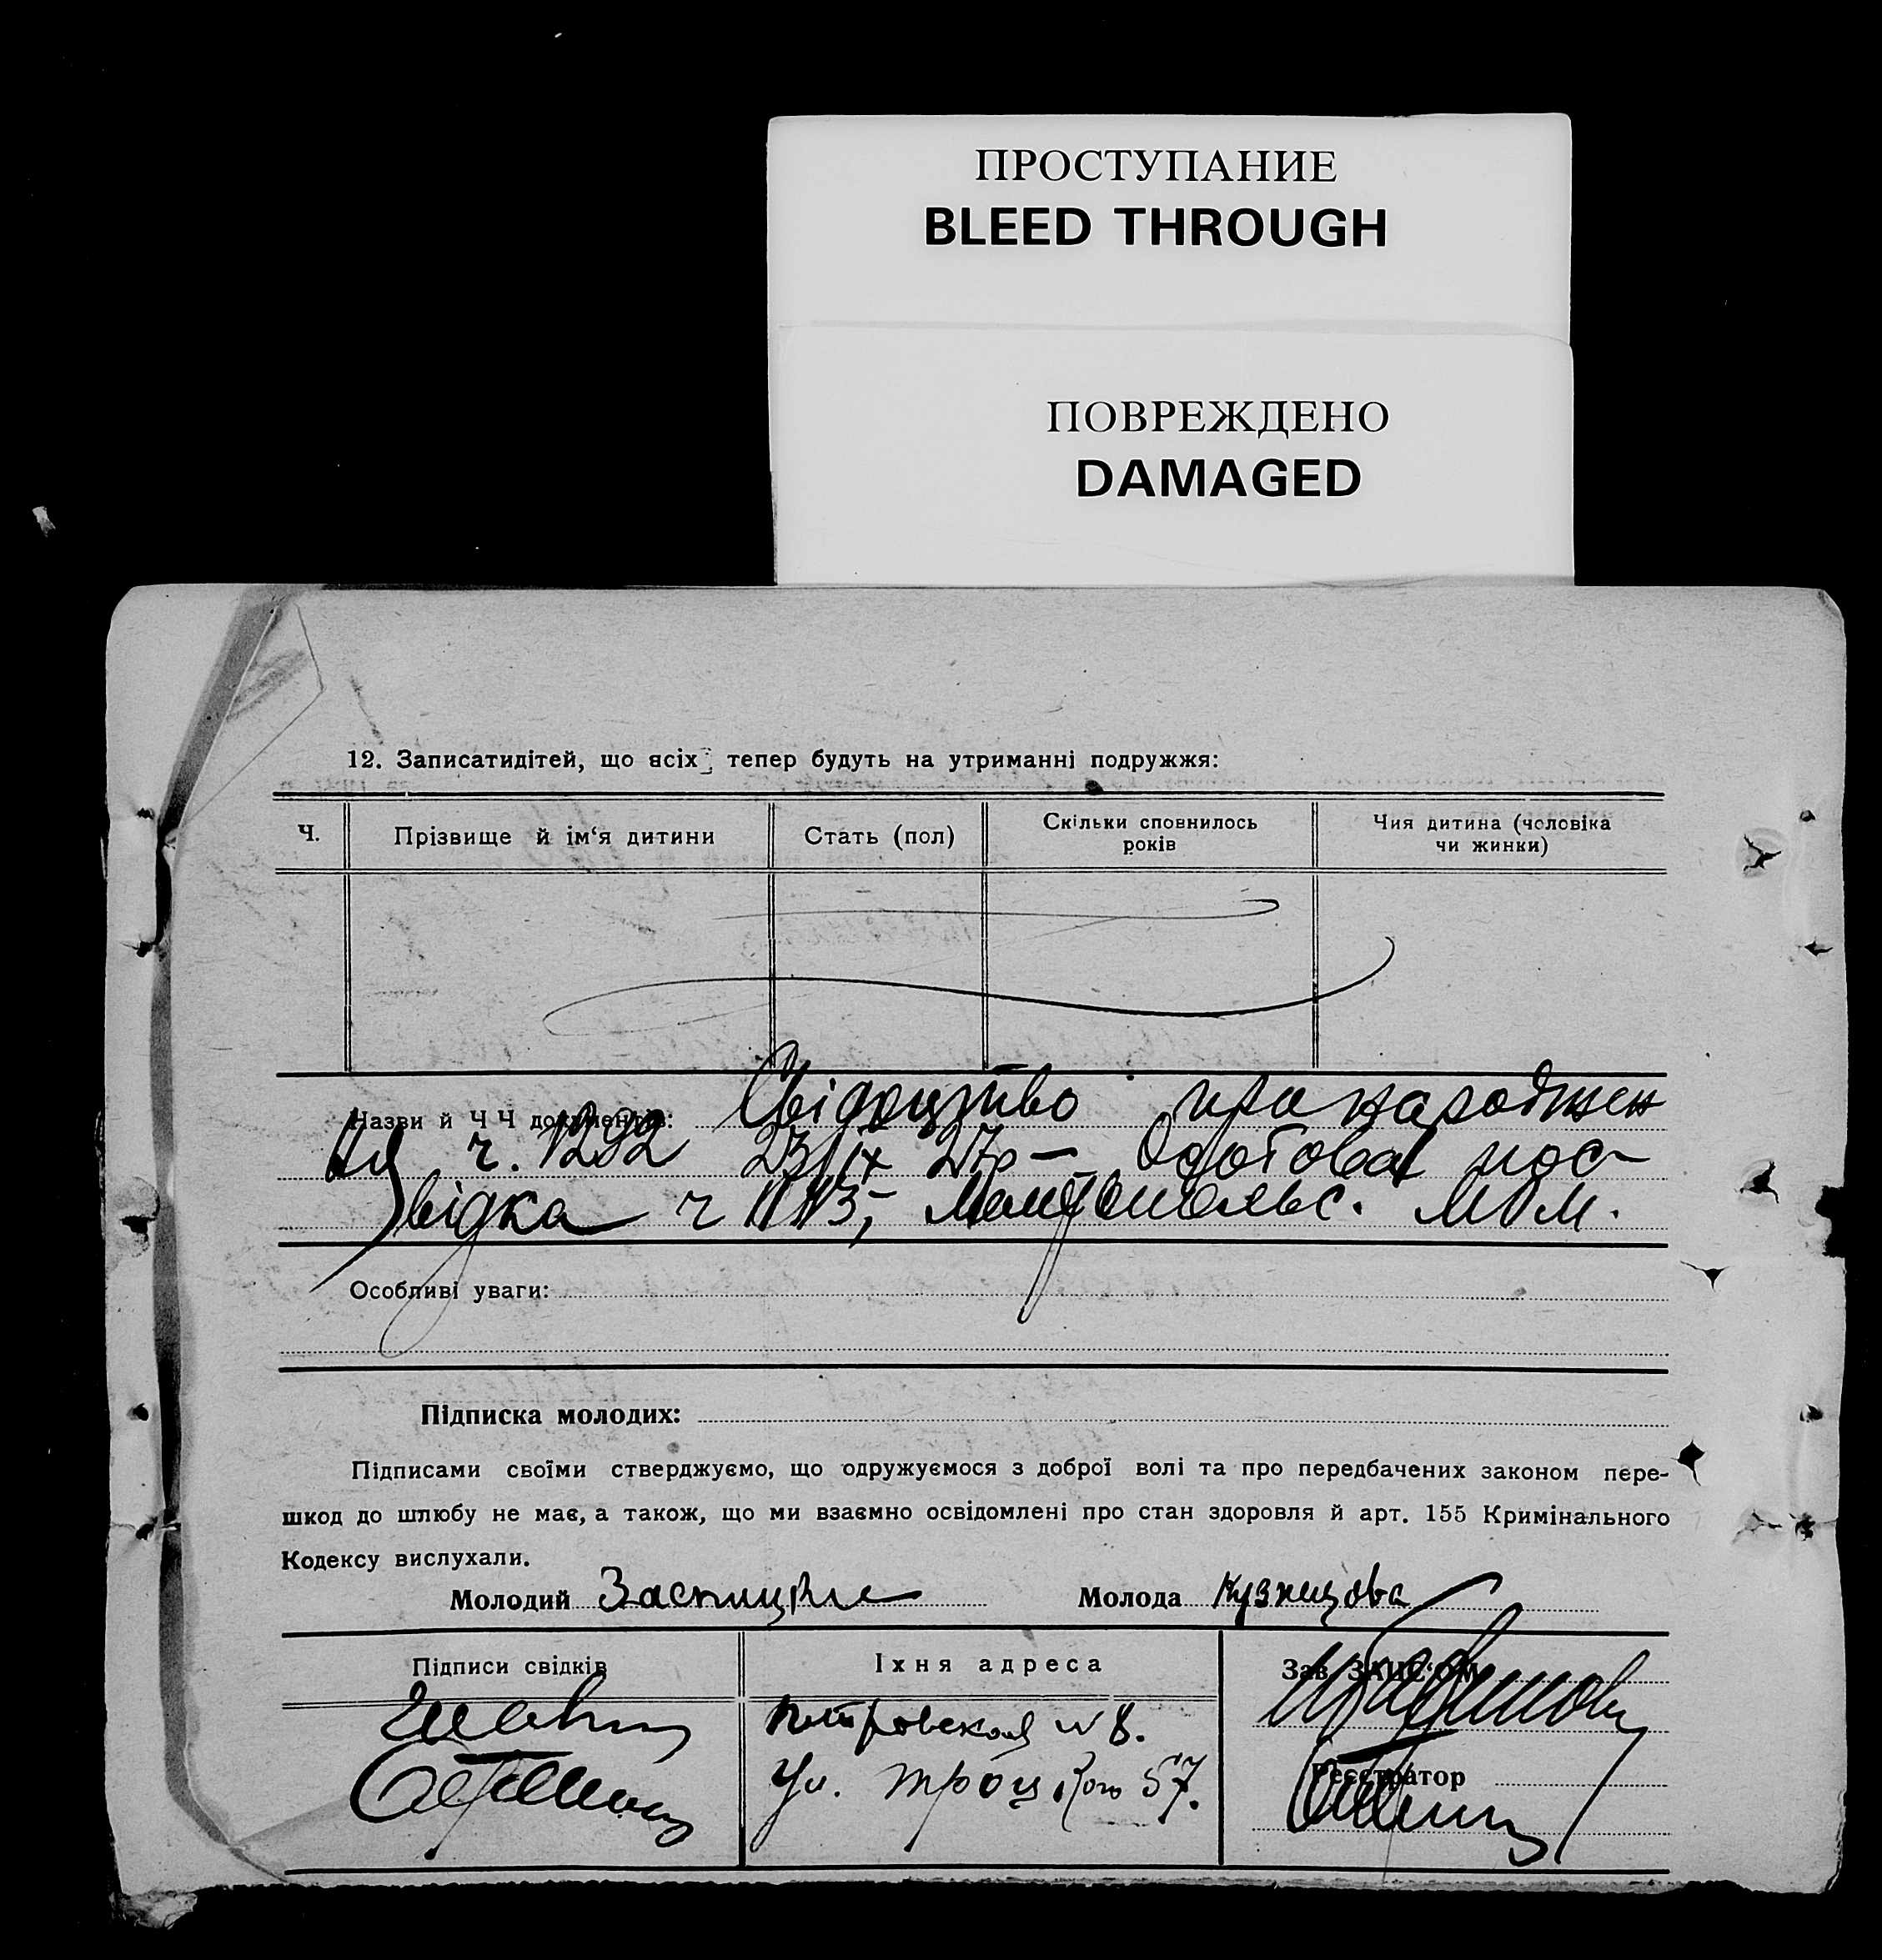 ПРОСТУПАНИЕ
BLEED THROUGH
ПОВРЕЖДЕНО
DAMAGED
12. Записатидітей, що всіх тепер будуть на утриманні подружжя:
Ч.
Прізвище й ім‘я дитини
Стать (пол)
Скільки сповнилось
років
Чия дитина (чоловіка
чи жинки)
Назви й Ч Ч документів: Свідоцтво про народжен
ня ч. 1292 23/IX 27р — пос-
відка ч
Особливі уваги:
Підписка молодих:
Підписами своїми стверджуємо, що одружуємося з доброї волі та про передбачених законом пере-
шкод до шлюбу не має, а також, що ми взаємно освідомлені про стан здоровля й арт. 155 Кримінального
Кодексу вислухали.
Молодий Молода Кузнецова
Підписи свідків
Їхня адреса
Зав. ЗАЦС‘ОМ
Петровская № 8.
Реєстратор
Ул. Троцкого 57.